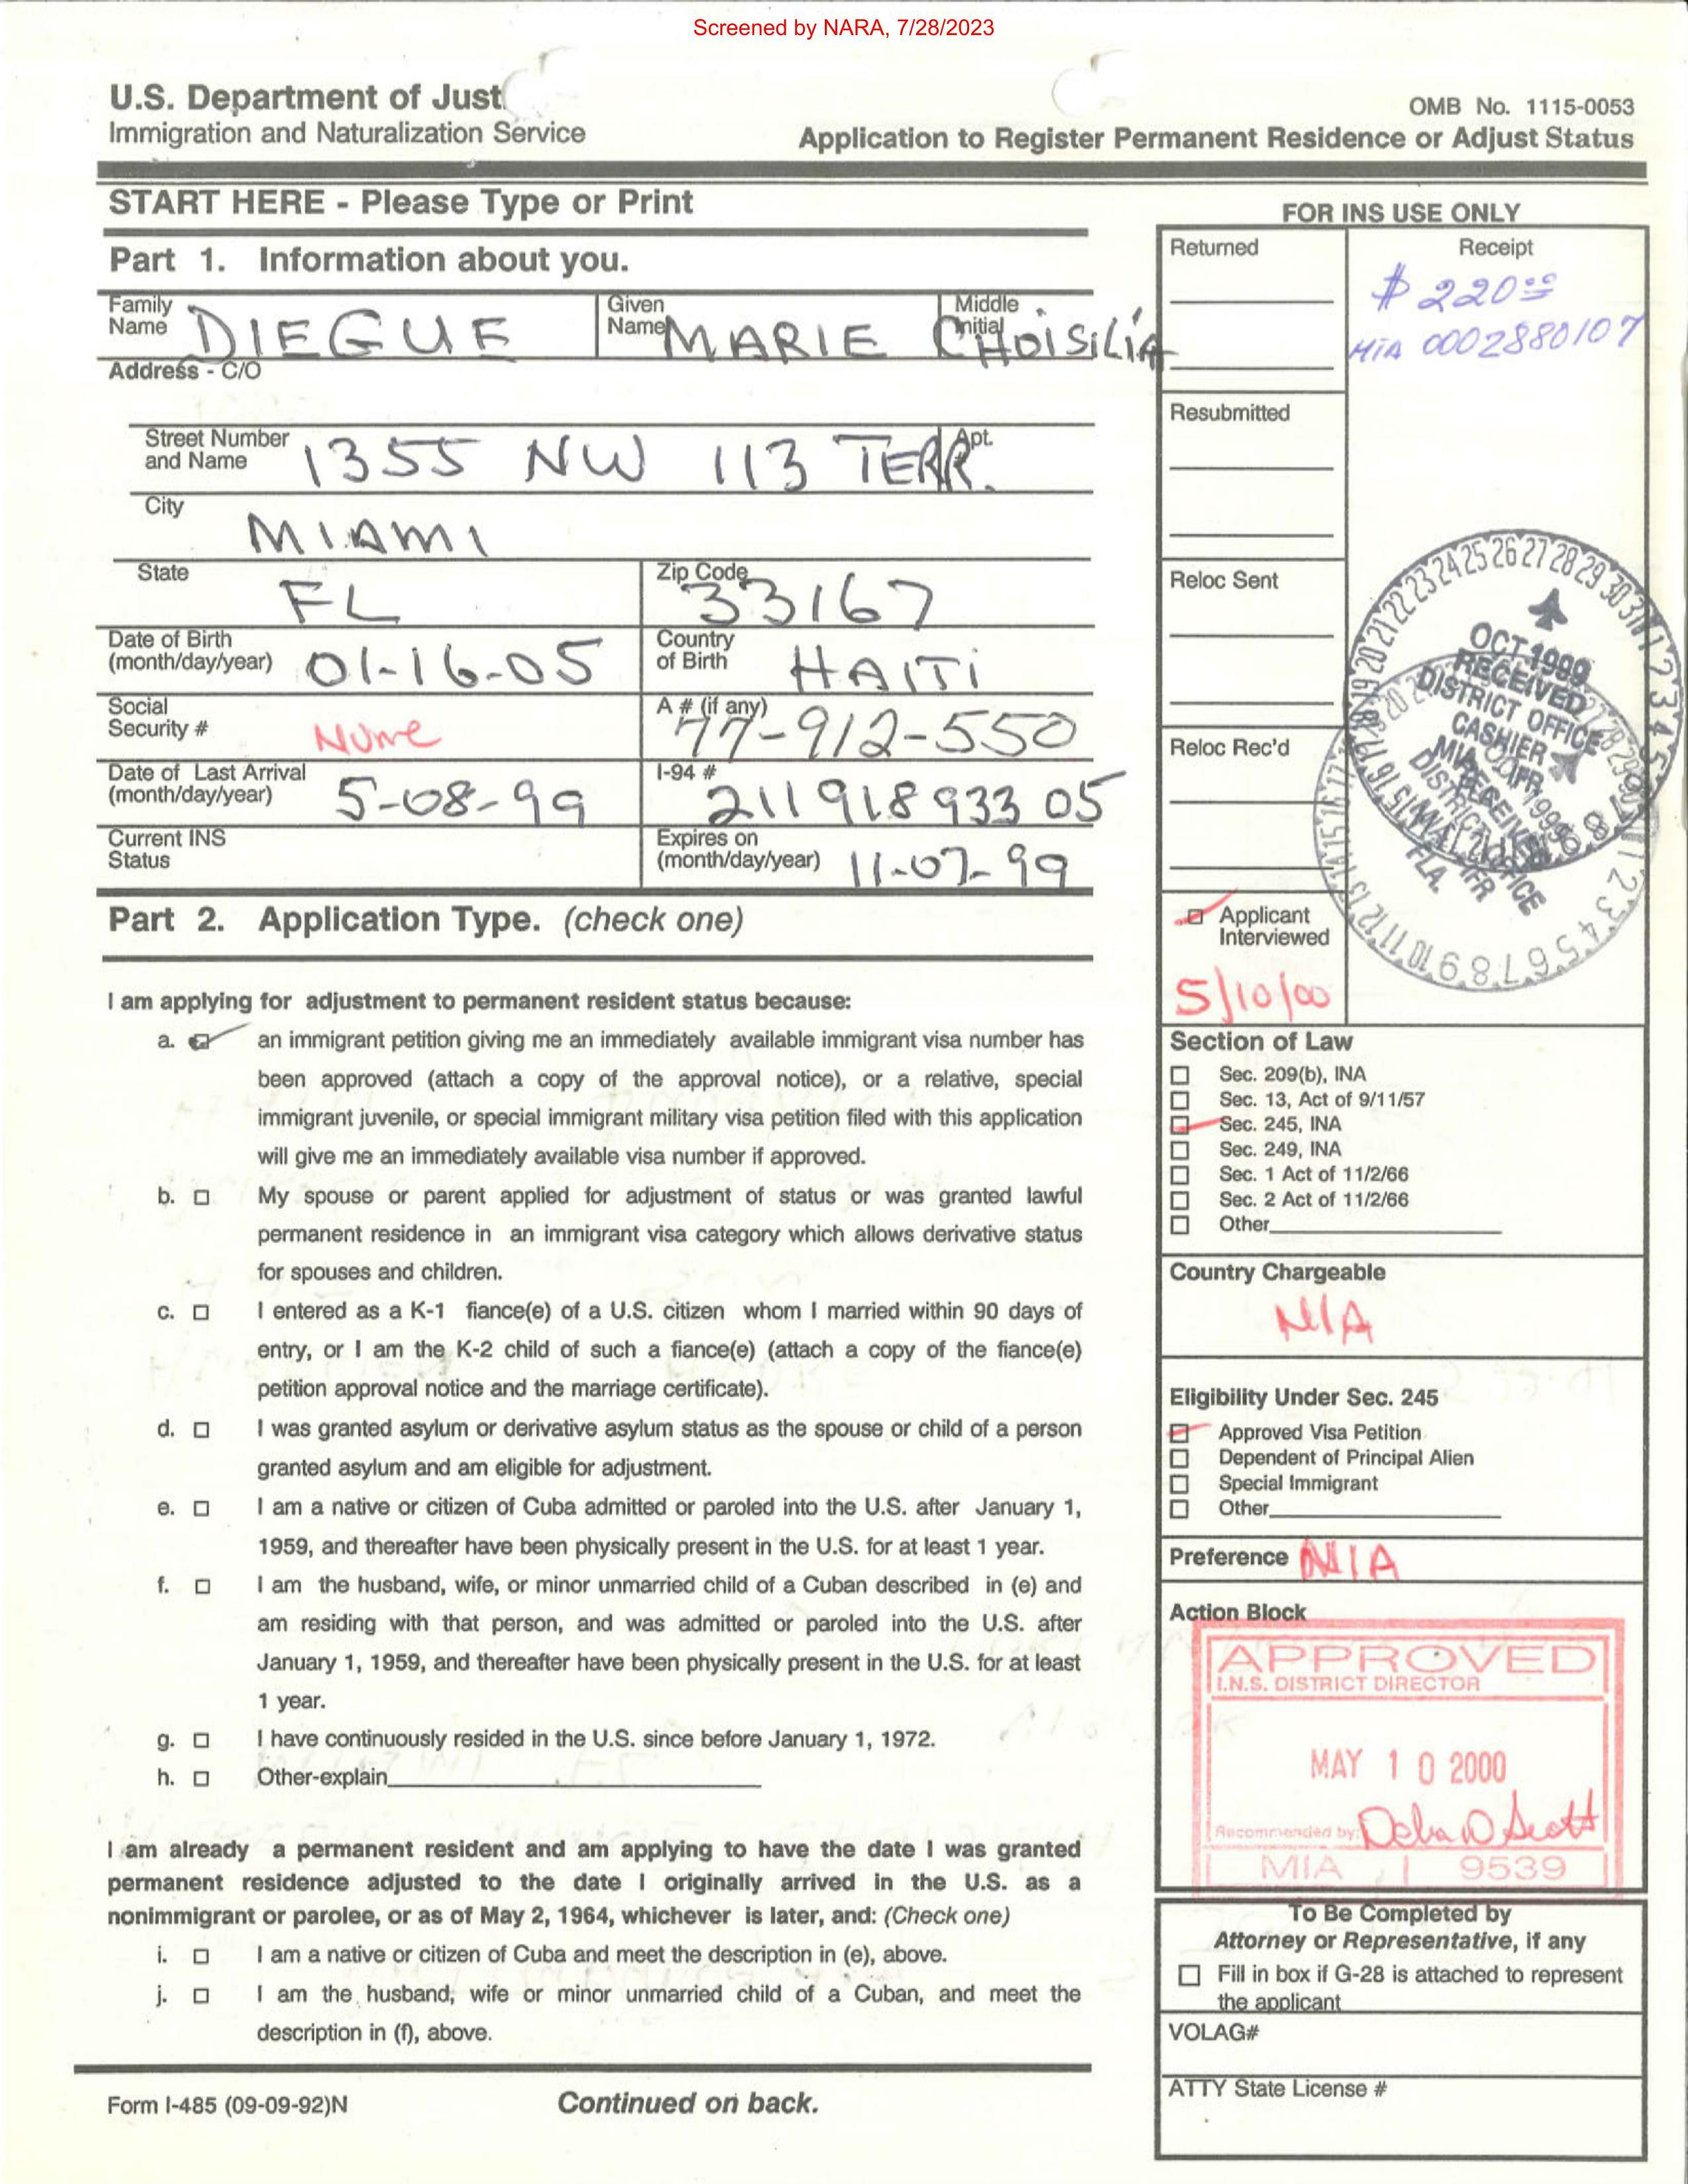 Screened by NARA, 7/28/2023
U.S. Department of Just
Immigration and Naturalization Service
OMB No. 1115-0053
Application to Register Permanent Residence or Adjust Status
START HERE - Please Type or Print
Part 1. Information about you.
Family Name DIEGUE
Given Name MARIE
Middle Initial CHOISILIA
Address - C/O
Street Number and Name 1355 NW 113 TERR.
Apt.
City MIAMI
State FL
Zip Code 33167
Date of Birth (month/day/year) 01-16-05
Country of Birth HAITI
Social Security # None
A # (if any) 77-912-550
Date of Last Arrival (month/day/year) 5-08-99
I-94 # 211918933 05
Current INS Status
Expires on (month/day/year) 11-07-99
Part 2. Application Type. (check one)
I am applying for adjustment to permanent resident status because:
a. an immigrant petition giving me an immediately available immigrant visa number has
been approved (attach a copy of the approval notice), or a relative, special
immigrant juvenile, or special immigrant military visa petition filed with this application
will give me an immediately available visa number if approved.
b. My spouse or parent applied for adjustment of status or was granted lawful
permanent residence in an immigrant visa category which allows derivative status
for spouses and children.
c. I entered as a K-1 fiance(e) of a U.S. citizen whom I married within 90 days of
entry, or I am the K-2 child of such a fiance(e) (attach a copy of the fiance(e)
petition approval notice and the marriage certificate).
d. I was granted asylum or derivative asylum status as the spouse or child of a person
granted asylum and am eligible for adjustment.
e. I am a native or citizen of Cuba admitted or paroled into the U.S. after January 1,
1959, and thereafter have been physically present in the U.S. for at least 1 year.
f. I am the husband, wife, or minor unmarried child of a Cuban described in (e) and
am residing with that person, and was admitted or paroled into the U.S. after
January 1, 1959, and thereafter have been physically present in the U.S. for at least
1 year.
g. I have continuously resided in the U.S. since before January 1, 1972.
h. Other-explain
I am already a permanent resident and am applying to have the date I was granted
permanent residence adjusted to the date I originally arrived in the U.S. as a
nonimmigrant or parolee, or as of May 2, 1964, whichever is later, and: (Check one)
i. I am a native or citizen of Cuba and meet the description in (e), above.
j. I am the husband, wife or minor unmarried child of a Cuban, and meet the
description in (f), above.
Form I-485 (09-09-92)N
Continued on back.
FOR INS USE ONLY
Returned
Receipt
$ 220.00
MIA 0002880107
Resubmitted
Reloc Sent
Reloc Rec'd
OCT 1999
RECEIVED
DISTRICT OFFICE
CASHIER
FLA.
Applicant
Interviewed
5/10/00
Section of Law
Sec. 209(b), INA
Sec. 13, Act of 9/11/57
Sec. 245, INA
Sec. 249, INA
Sec. 1 Act of 11/2/66
Sec. 2 Act of 11/2/66
Other
Country Chargeable
N/A
Eligibility Under Sec. 245
Approved Visa Petition
Dependent of Principal Alien
Special Immigrant
Other
Preference N/A
Action Block
APPROVED
I.N.S. DISTRICT DIRECTOR
MAY 10 2000
Recommended by: Debra D Scott
MIA 9539
To Be Completed by
Attorney or Representative, if any
Fill in box if G-28 is attached to represent
the applicant
VOLAG#
ATTY State License #